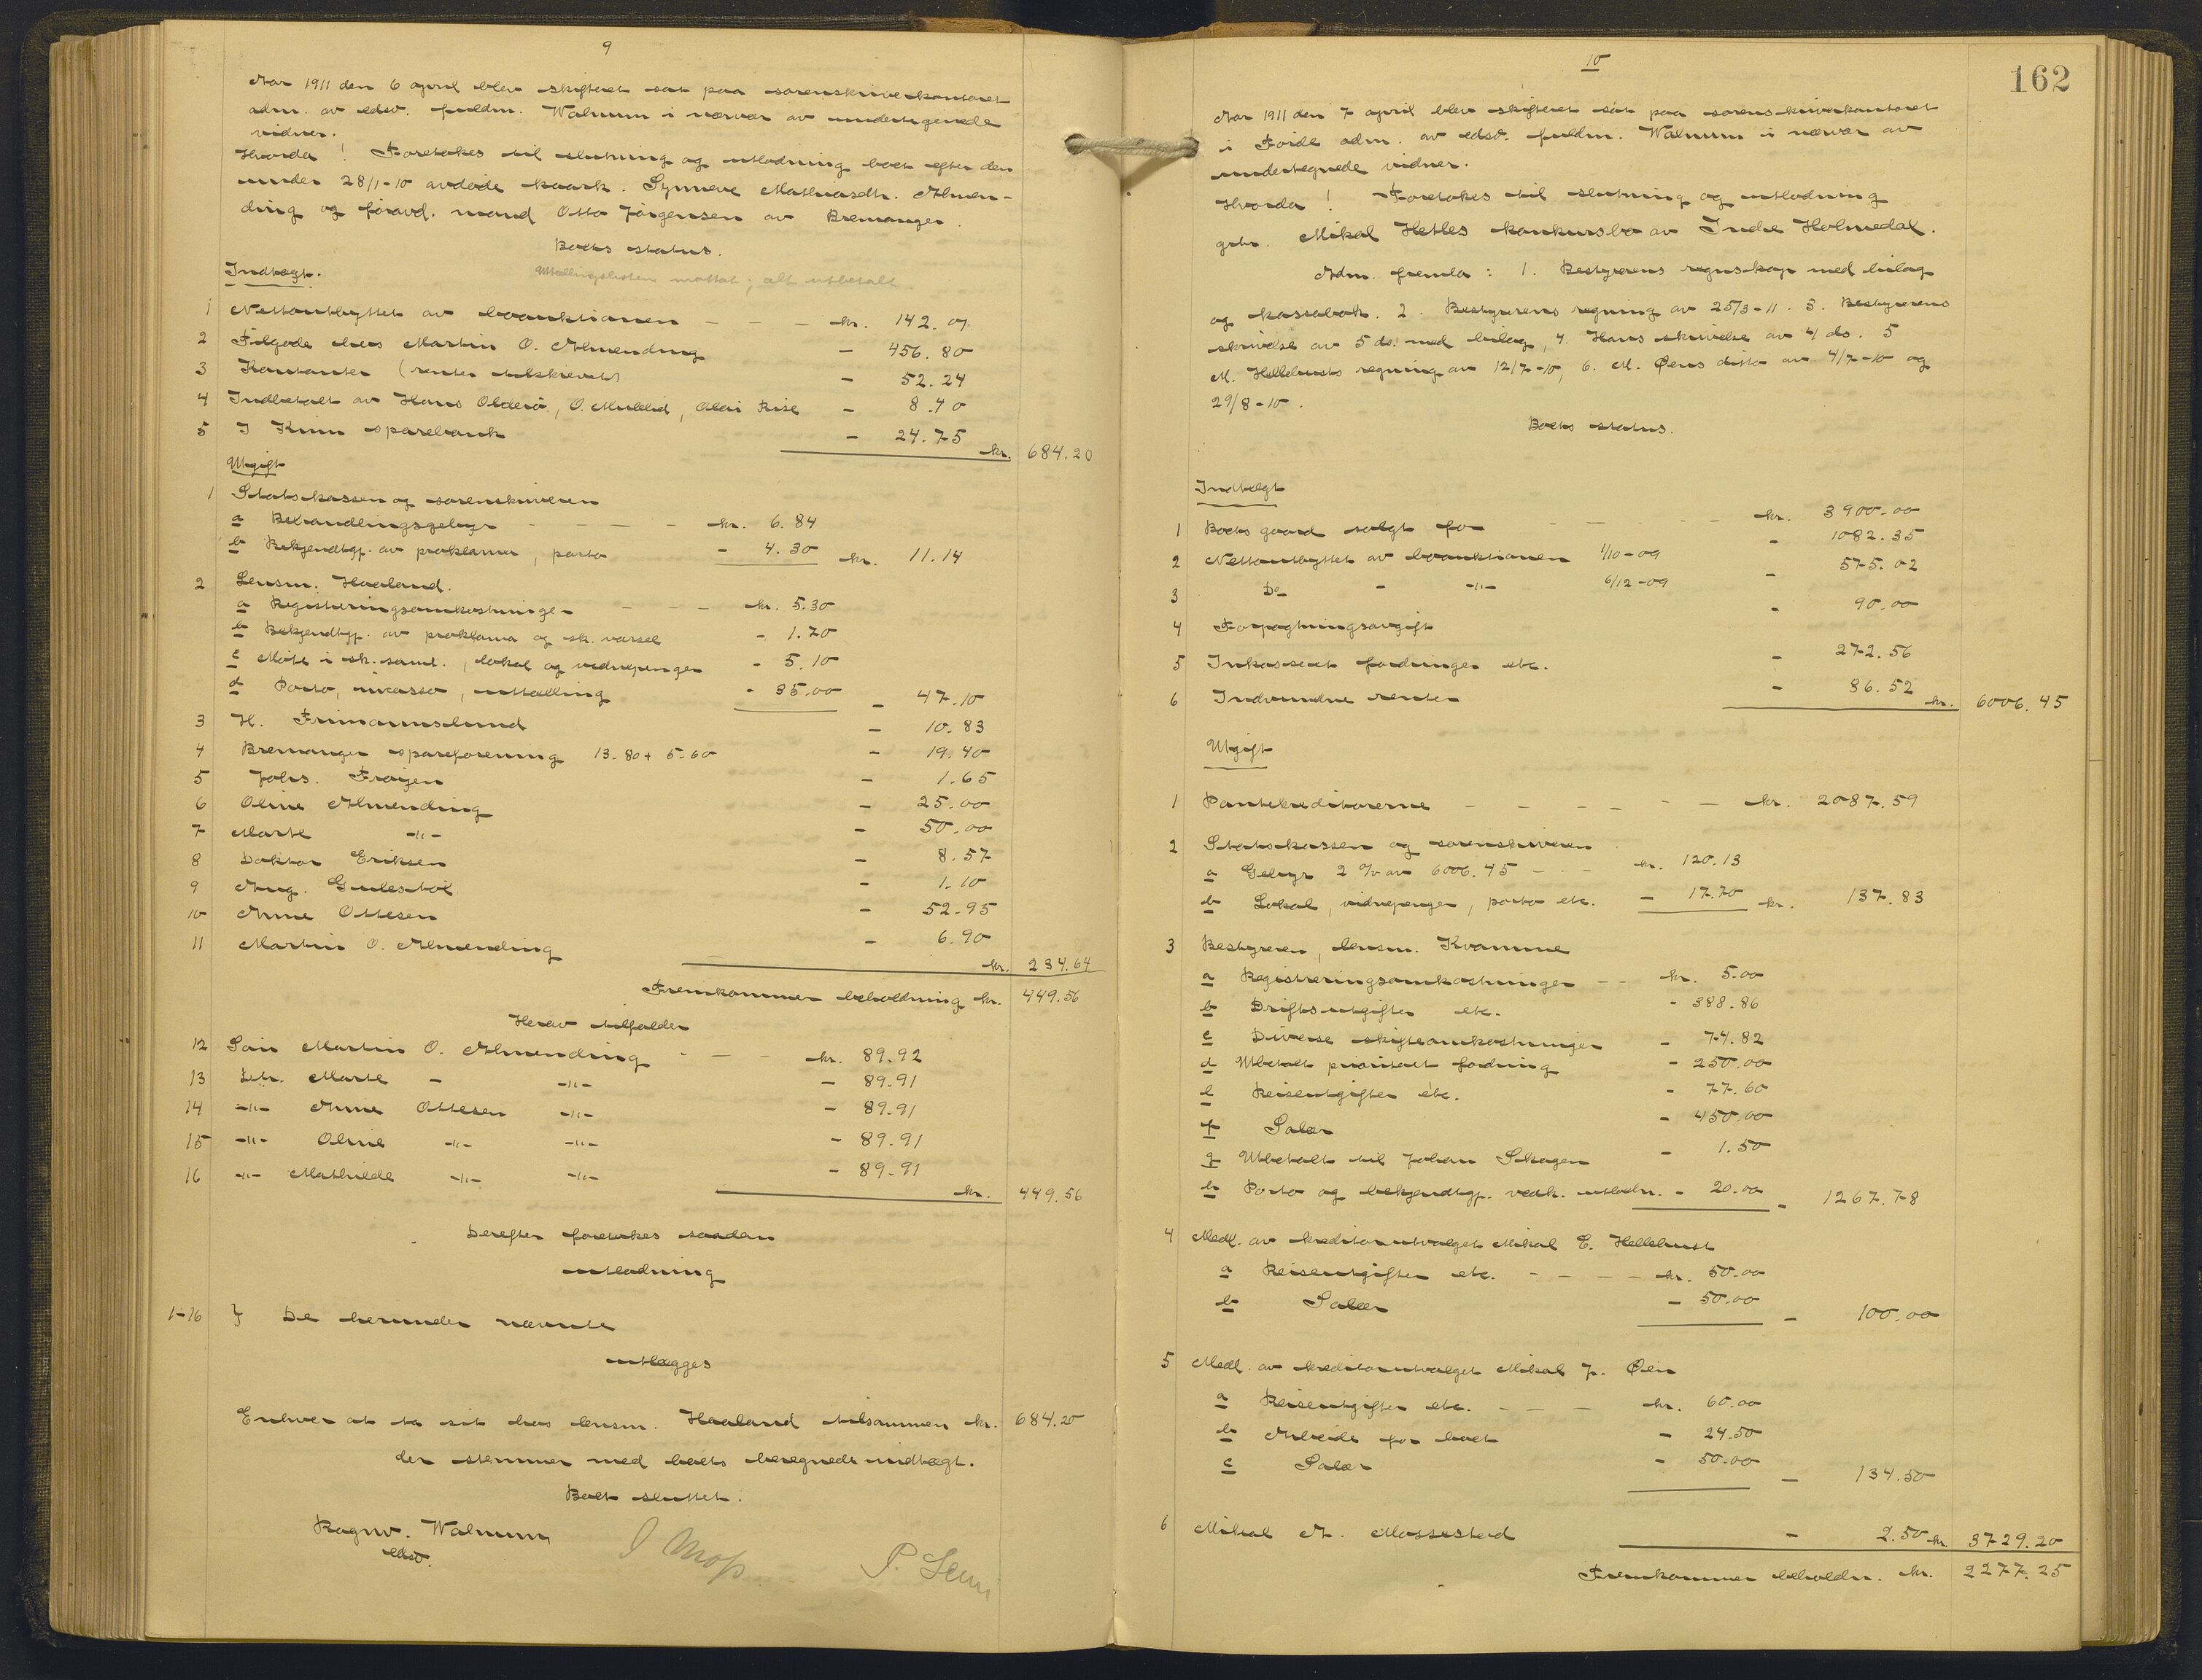 9
Aar 1911 den 6 april blev skifteret sat paa sorenskriverkontoret
adm. av edsv. fuldm. Walnum i nærvær av undertegnede
vidner.
Hvorda! Foretokes til slutning og utlodning boet efter den
under 28/1-10 avdøde kaark. Synneve Mathiasdtr. Almen-
ding og føravd. mand Otto Jörgensen av Bremanger.
Boets status.
Utællingslisten mottat; alt utbetalt
Indtægt.
1 Nettoutbyttet av boauktionen - - - kr. 142.07
2 Tilgode hos Martin O. Almending - 456.80
3 Kontanter (renter tilskrevet) - 52.24
4 Indbetalt av Hans Olderö, O. Myklid, Olai Rise - 8.40
5 I Kinn sparebank - 24.75 kr. 684.20
Utgift
1 Statskassen og sorenskriveren
a Behandlingsgebyr - - - - kr. 6.84
b Bekjendtgj. av proklama, porto - 4.30 kr. 11.14
2 Lensm. Haaland.
a Registreringsomkostninger - - - kr. 5.30
b Bekjendtgj. av proklama og sk. varsel - 1.70
c Møte i sk.saml., lokal og vidnepenger - 5.10
d Porto, incasso, uttælling - 35.00 - 47.10
3 H. Frimannslund - 10.83
4 Bremanger spareforening 13.80 + 5.60 - 19.40
5 Johs. Frøyen - 1.65
6 Oline Almending - 25.00
7 Marte -"- - 50.00
8 Doktor Eriksen - 8.57
9 Aug. Gulestøl - 1.10
10 Anne Ottesen - 52.95
11 Martin O. Almending - 6.90
kr. 234.64
Fremkommer beholdning kr. 449.56
Herav tilfalder
12 Søn Martin O. Almending - - - kr. 89.92
13 Dtr. Marte - -"- - 89.91
14 -"- Anne Ottesen -"- - 89.91
15 -"- Oline -"- -"- - 89.91
16 -"- Mathilde -"- -"- - 89.91
kr. 449.56
Derefter foretokes saadan
utlodning
1-16 } De herunder nævnte
utlægges
Enhver at ta sit hos lensm. Haaland tilsammen kr. 684.20
der stemmer med boets beregnede indtægt.
Boet sluttet.
Ragnv. Walnum
edsv.
P. Leni
10
162
Aar 1911 den 7 april blev skifteret sat paa sorenskriverkontoret
i Førde adm. av edsv. fuldm. Walnum i nærvær av
undertegnede vidner.
Hvorda! Foretokes til slutning og utlodning
gbr. Mikal Hetles konkursbo av Indre Holmedal.
Adm. fremla: 1. Bestyrerens regnskap med bilag
og kassabok. 2. Bestyrerens regning av 25/3-11. 3. Bestyrerens
skrivelse av 5 ds. med bilag, 4. Hans skrivelse av 4/ ds. 5
M. Hellebusts regning av 12/7-10, 6. M. Øens ditto av 4/7-10 og
29/8-10.
Boets status.
Indtægt
1 Boets gaard solgt for - - - - kr. 3900.00
2 Nettoutbyttet av boauktionen 1/10-09 - 1082.35
3 Do - -"- 6/12-09 - 575.02
4 Forpagtningsavgift - 90.00
5 Inkasseret fordringer etc. - 272.56
6 Indvundne renter - 86.52 kr. 6006.45
Utgift
1 Pantekreditorerne - - - - - - kr. 2087.59
2 Statskassen og sorenskriveren
a Gebyr 2 % av 6006.45 - - - kr. 120.13
b Lokal, vidnepenger, porto etc. - 17.70 kr. 137.83
3 Bestyreren, lensm. Kvamme
a Registreringsomkostninger - - kr. 5.00
b Driftsutgifter etc. - 388.86
c Diverse skifteomkostninger - 74.82
d Utbetalt prioritert fordring - 250.00
e Reiseutgifter etc. - 77.60
f Salær - 450.00
g Utbetalt til Johan Skagen - 1.50
h Porto og bekjendtgj. vedk. utlodn. - 20.00 - 1267.78
4 Medl. av kreditorutvalget Mikal E. Hellebust
a Reiseutgifter etc. - - - - kr. 50.00
b Salær - 50.00 - 100.00
5 Medl. av kreditorutvalget Mikal J. Øen
a Reiseutgifter etc. - - - kr. 60.00
b Arbeide for boet - 24.50
c Salær - 50.00 - 134.50
6 Mikal A. Massestad - 2.50 kr. 3729.20
Fremkommer beholdn. kr. 2277.25